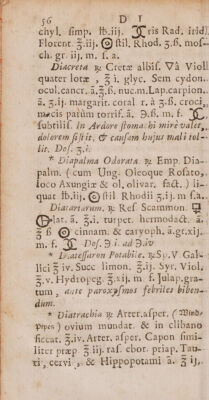 56 D I
chyl. simp. ℔.iij. Iris Rad. irid.
Florent ʒ.iij. Ostil. Rhod. ʒ.ß. mos-
ch. gr. iij. m. f. a.
Diacreta ℞ Cretæ albiſ. Vâ Viol
quater lotæ , ℥ i. glyc. Sem cydon.
ocul.cancr. ā.ʒ.ß. nuc.m.Lap.carpion.
ā. ʒ.ij. margarit. coral r. à ʒ.ß. croci,
macis parùm torrif. ā. ℈.ß. m. f.
ſubtiliſ. In Ardore ſtoma: hi mirè valet,
dolorem ſiſtit, & cauſam hujus mali tol-
lit. Doſ. ʒ.i.
* Diapalma Odorata ℞ Emp. Dia-
palm. ( cum Ung. Oleoque Roſato,
loco Axungiæ & ol, olivar. fact. ) li-
quat ℔.iij. Ostil Rhodii ʒ.ij. m f.a.
Diatartarum. ℞ Reſ Scammon.
elat. ā. ℥.i. turpet. hermodact. ā.
℥ ß cinnam. & caryoph. ā.gr.xij.
m. f. Doſ. ℈ i. ad ℈iv
* Diateſſaron Potabile. ℞Sp.V Gal-
lici ℥ iv. Succ limon. ℥.ij. Syr. Viol.
℥.v. Hydropeg. ℥.xij. m. f. Julap.gra-
tum , ante paroxyſmos febriles biben-
dum.
* Diatrachia ℞ Arter.aſper. ( Wind-
Pipes ) ovium mundat. & in clibano
ſiccat. ℥.iv. Arter. aſper. Capon ſimi-
liter præp ℥ iij. raſ. ebor. priap. Tau-
ri, cervi , & Hippopotami ā. ℥ ij.